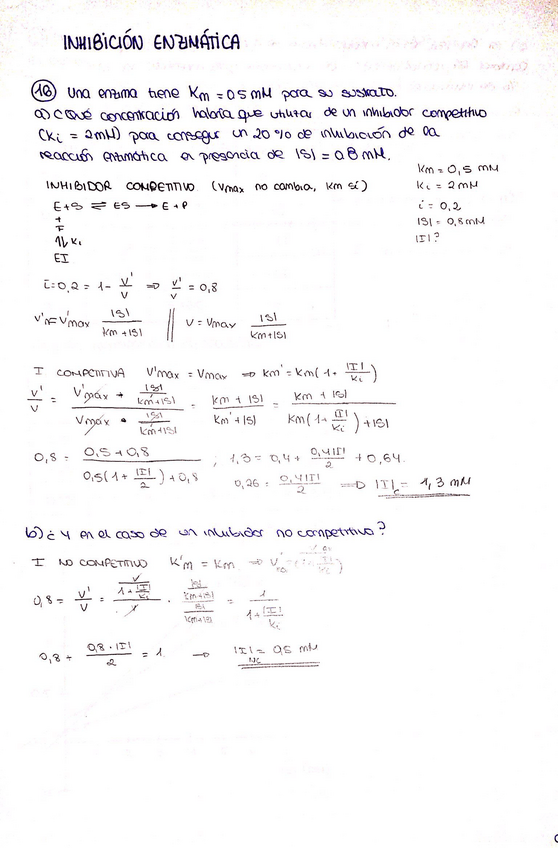 INHIBICIÓN ENZIMÁTICA
16 Una enzima tiene Km = 0,5 mM para su sustrato.
a) ¿Qué concentración habría que utilizar de un inhibidor competitivo
(Ki = 2mM) para conseguir un 20% de inhibición de la
reacción enzimática en presencia de |S| = 0,8 mM.
Km = 0,5 mM
Ki = 2mM
i = 0,2
|S| = 0,8mM
|I|?
INHIBIDOR COMPETITIVO (Vmax no cambia, Km sí)
E+S ⇌ ES → E+P
+
I
⇅ Ki
EI
i = 0,2 = 1 - V'/V ⇒ V'/V = 0,8
V' = V'max |S| / Km+|S| || V = Vmax |S| / Km+|S|
I COMPETITIVA V'max = Vmax ⇒ Km' = Km(1 + |I|/Ki)
V'/V = (V'max · |S|/Km'+|S|) / (Vmax · |S|/Km+|S|) = Km + |S| / Km' + |S| = Km + |S| / Km(1 + |I|/Ki) + |S|
0,8 = 0,5 + 0,8 / 0,5(1 + |I|/2) + 0,8 ; 1,3 = 0,4 + 0,4|I|/2 + 0,64.
0,26 = 0,4|I|/2 ⇒ |I|c = 1,3 mM
b) ¿Y en el caso de un inhibidor no competitivo?
I NO COMPETITIVO K'm = Km ⇒
0,8 = V'/V = 1 / 1 + |I|/Ki
0,8 + 0,8·|I|/2 = 1. → |I|NC = 0,5 mM